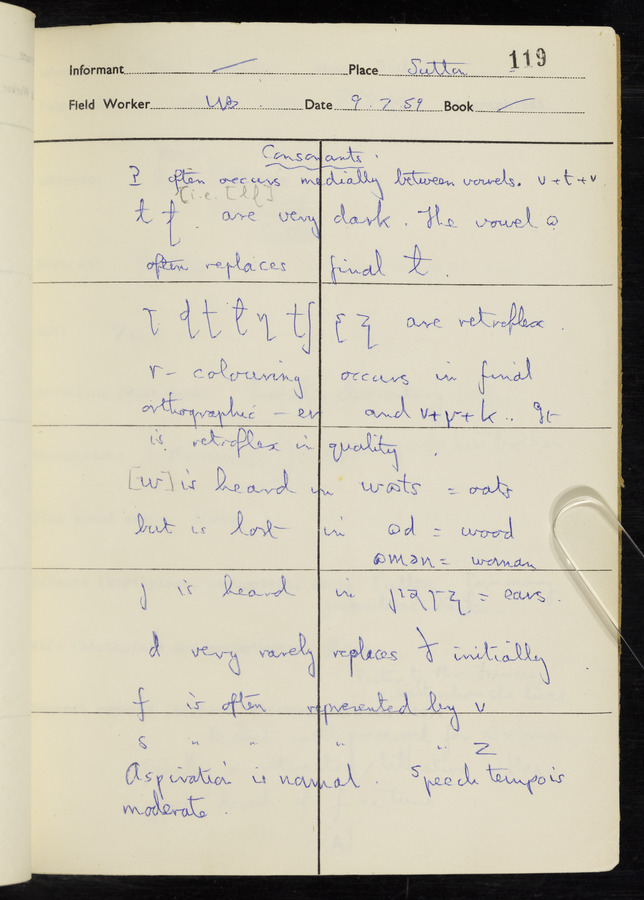 119
Informant Place Sutton
Field Worker WS Date 9.7.59 Book
Consonants.
ʔ often occurs medially between vowels. v+t+v
[i.e. [ɫɫ]]
ɫ ɫ̩ are very dark. The vowel ɷ
often replaces final ɫ.
ɽ ɖ ʈ ɭ ɳ tʃ are retroflex.
r-colouring occurs in final
orthographic -er and v+r+k.. It
is retroflex in quality.
[w] is heard in wɒts = oats
but is lost in ɷd = wood
ɷmən = woman
j is heard in = ears.
d very rarely replaces ð initially
f is often represented by v
s " " " " z
Aspiration is normal. Speech tempo is
moderate.